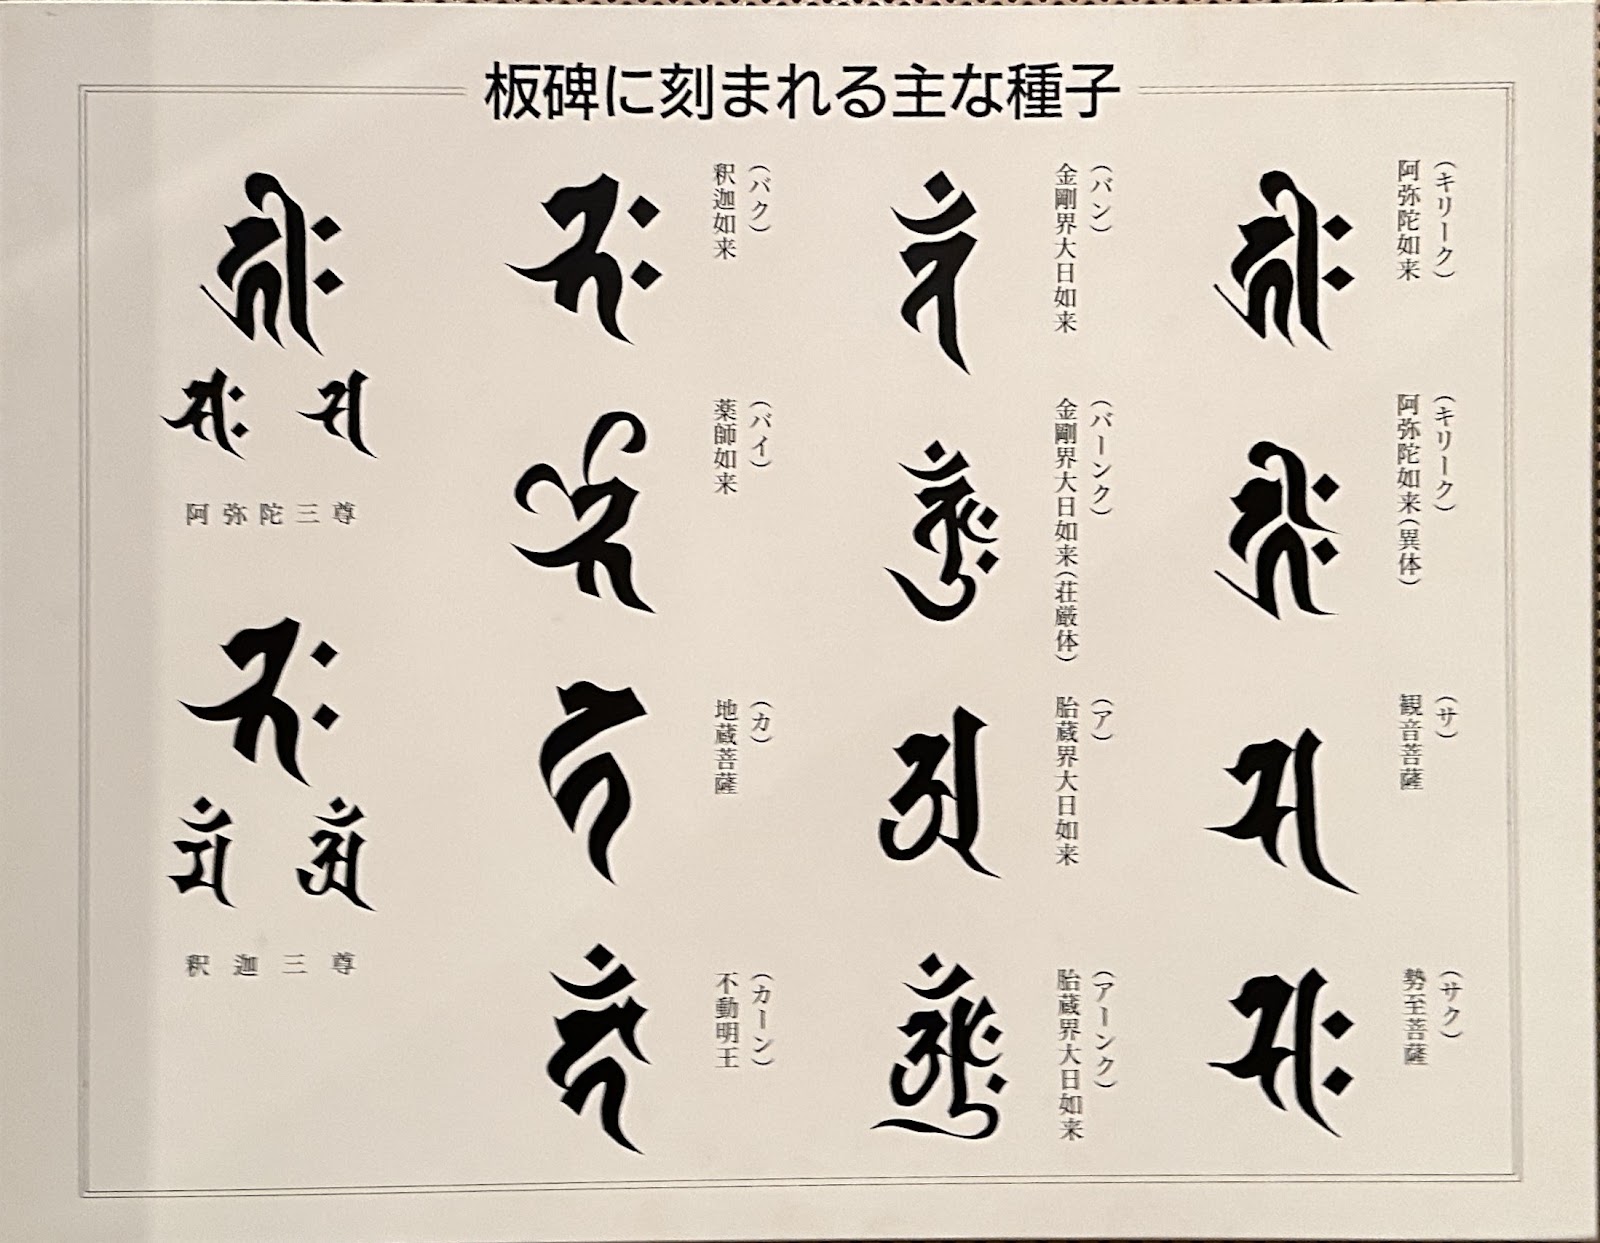 板碑に刻まれる主な種子
(キリーク)
阿弥陀如来
(キリーク)
阿弥陀如来(異体)
(サ)
観音菩薩
(サク)
勢至菩薩
(バン)
金剛界大日如来
(バーンク)
金剛界大日如来(荘厳体)
(ア)
胎蔵界大日如来
(アーンク)
胎蔵界大日如来
(バク)
釈迦如来
(バイ)
薬師如来
(カ)
地蔵菩薩
(カーン)
不動明王
阿弥陀三尊
釈迦三尊